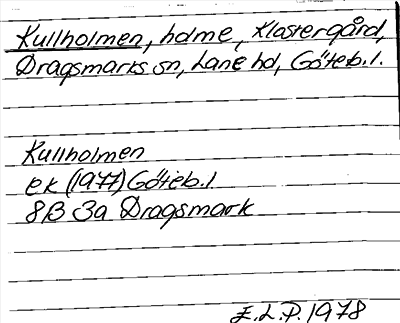 Kullholmen, holme, Klostergård,
Dragsmarks sn, Lane hd, Göteb. l.
Kullholmen
ek (1977) Göteb. l
8B 3a Dragsmark
E.L.P. 1978